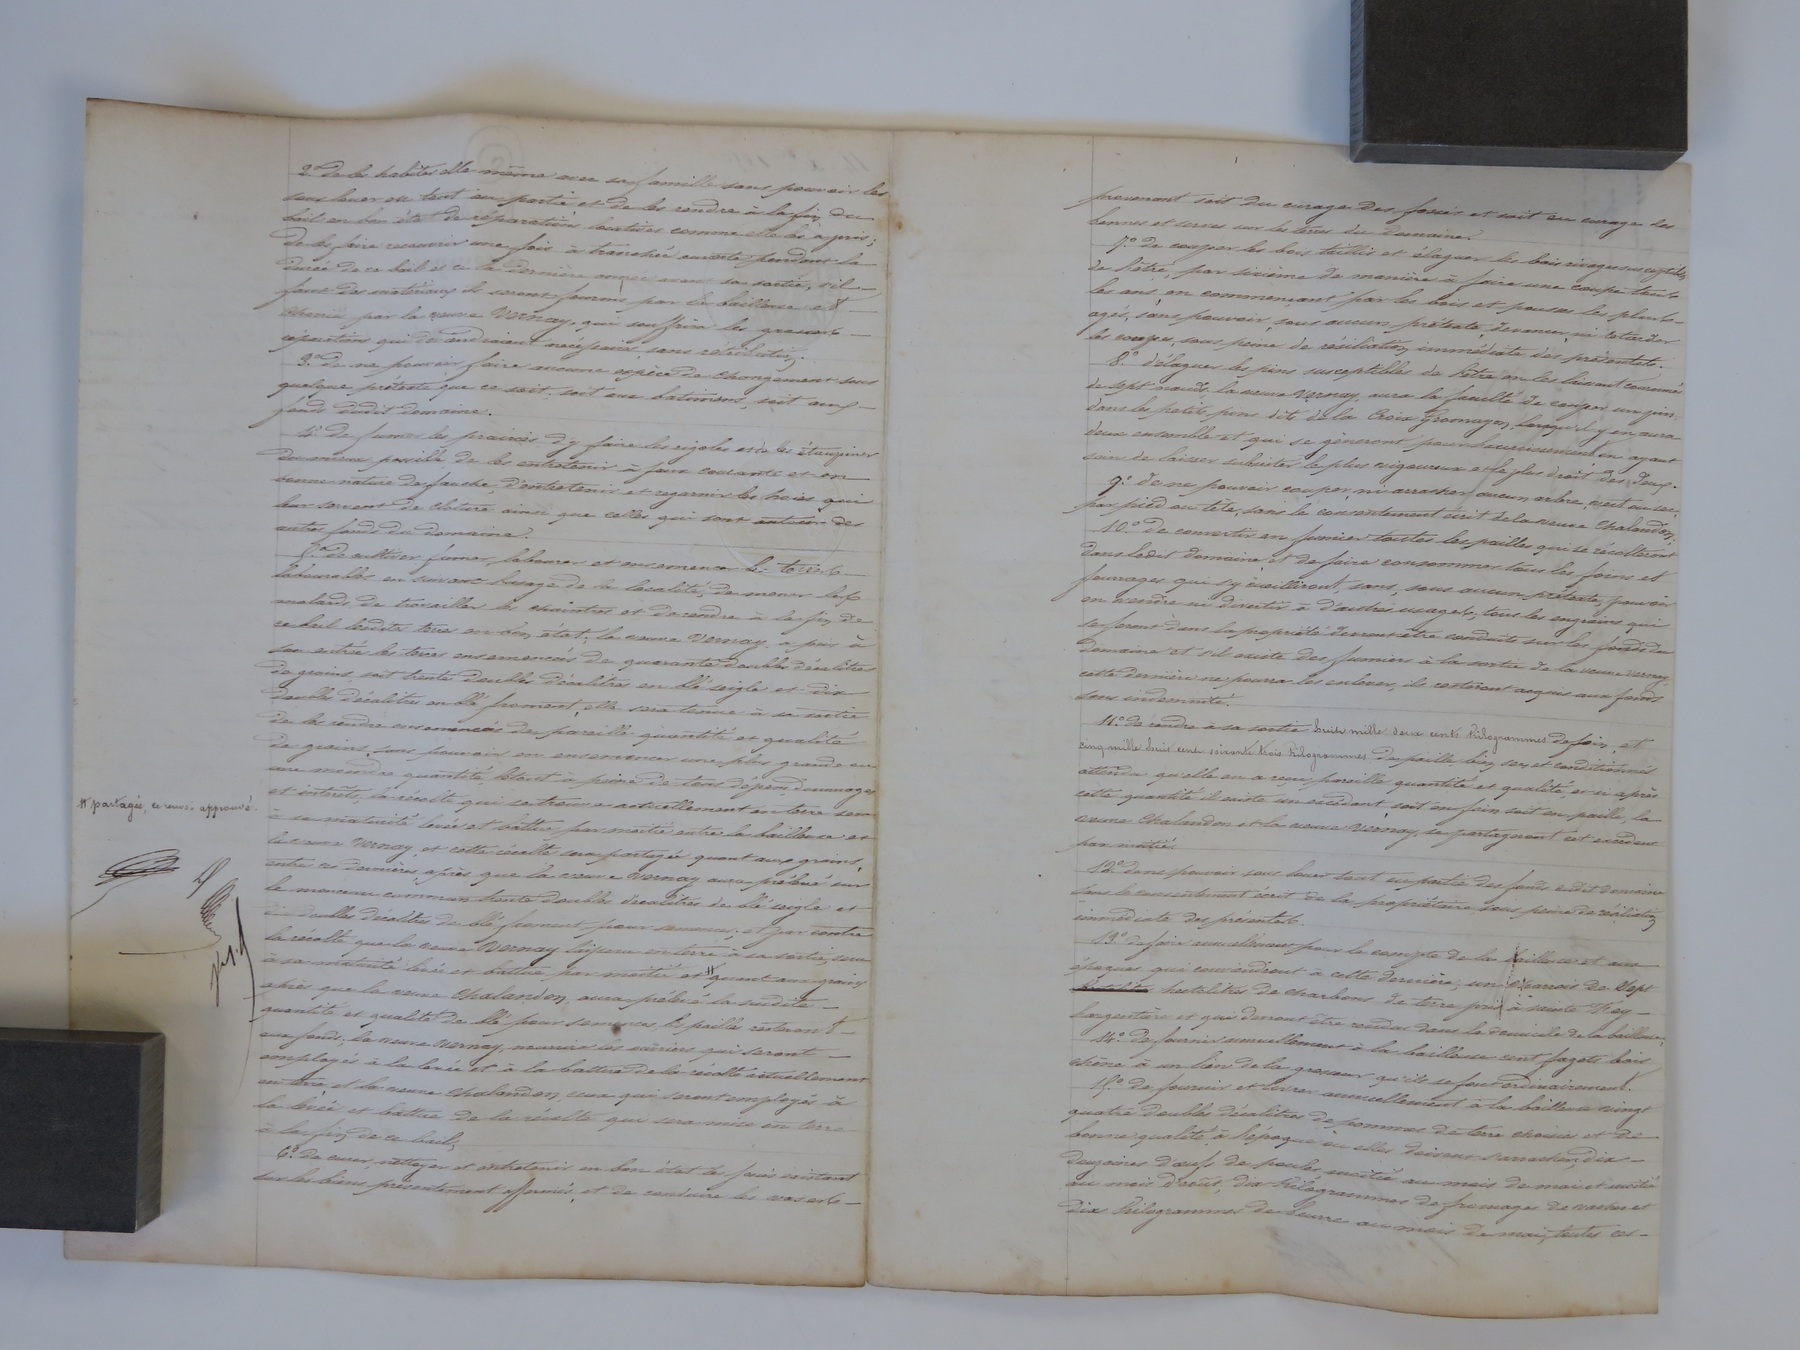 2° de les habiter elle même avec sa famille sans pouvoir les
sous louer en tout ou partie et de les rendre à la fin du
bail en bon état de réparations locatives comme elle les a pris;
de les faire recouvrir une fois à tranchée ouverte pendant la
durée de ce bail et ce la dernière année avant sa sortie, s'il
faut des matériaux ils seront fournis par la bailleuse et
charriés par la veuve Vernay, qui souffrira les grosses
réparations qui deviendraient nécessaires sans rétribution.
3° de ne pouvoir faire aucune espèce de changement sous
quelque prétexte que ce soit, soit aux batimens, soit aux
fonds dudit domaine.
4° de fumer les prairies d'y faire les rigoles et de les étaupiner
du mieux possible, de les entretenir à faux courante et en
bonne nature de fauche, d'entretenir et regarnir les haies qui
leur servent de cloture ainsi que celles qui sont autour des
autres fonds du domaine.
5° de cultiver, fumer, labourer et ensemencer les terres
labourables en suivant l'usage de la localité, de mener les
molards, de travailler les chaintres et de rendre à la fin de
ce bail lesdites terres en bon état; la veuve Vernay a pris à
son entrée les terres ensemencées de quarante doubles décalitres
de grains, soit trente doubles décalitres en blé seigle et dix
doubles décalitres en blé froment, elle sera tenue à sa sortie
de les rendre ensemencées de pareille quantité et qualité
de grains, sans pouvoir en ensemencer une plus grande ou
une moindre quantité, le tout à peine de tous dépens dommages
et intérêts, la récolte qui se trouve actuellement en terre sera
à sa maturité levée et battue par moitié entre la bailleuse et
la veuve Vernay, et cette récolte sera partagée quant aux grains,
entre ces dernières après que la veuve Vernay aura prélevé sur
le monceau commun trente doubles décalitres de blé seigle et
dix doubles décalitres de blé froment pour semence; et par contre
la récolte que la veuve Vernay laissera en terre à sa sortie, sera
à sa maturité levée et battue par moitié et # quant aux grains
après que la veuve Chalandon, aura prélevé la susdite
quantité et qualité de blé pour semences, les pailles resteront
aux fonds; la veuve Vernay, nourrira les ouvriers qui seront
employés à la levée et à la batture de la récolte actuellement
en terre et la veuve Chalandon, ceux qui seront employés à
la levée et batture de la récolte qui sera mise en terre
à la fin de ce bail.
6° de curer, nettoyer et entretenir en bon état les fossés existant
sur les biens présentement affermés, et de conduire les vases
# partagée, ce renvoi approuvé.
provenant soit du curage des fossés et soit du curage des
bennes et serves sur les terres du domaine.
7° de couper les bois taillis et élaguer les bois rivages susceptibles
de l'être, par sixième de manière à faire une coupe tous
les ans, en commençant par les bois et pousses les plus
agés, sans pouvoir, sous aucun prétexte, devancer, ni retarder
les coupes, sous peine de résiliation immédiate des présentes.
8° d'élaguer les pins susceptibles de l'être en les laissant couronnés
de sept nœuds, la veuve Vernay, aura la faculté de couper un pin,
dans les petits pins dits de la Croix Gromagon, lorsqu'il y en aura
deux ensemble et qui se gêneront pour l'accroissement en ayant
soin de laisser subsister le plus vigoureux et le plus droit des deux.
9° de ne pouvoir couper, ni arracher aucun arbre, vert ou sec,
par pied ou tête, sans le consentement écrit de la veuve Chalandon;
10° de convertir en fumier toutes les pailles qui se récolteront
dans ledit domaine et de faire consommer tous les foins et
fourrages qui s'y cueilliront, sans, sous aucun prétexte, pouvoir
en vendre ni divertir à d'autres usages, tous les engrais qui
se feront dans la propriété devront être conduits sur les fonds du
domaine et s'il existe des fumiers à la sortie de la veuve Vernay,
cette dernière ne pourra les enlever, ils resteront acquis aux fonds
sans indemnité.
11° de rendre à sa sortie huit mille deux cents kilogrammes de foin, et
cinq mille huit cent soixante trois kilogrammes de paille bien secs et conditionnés
attendu qu'elle en a reçu pareille quantité et qualité, et si après
cette quantité il existe un excédant soit en foin soit en paille, la
veuve Chalandon et la veuve Vernay, se partageront cet excédent
par moitié.
12° de ne pouvoir sous louer tout ou partie des fonds dudit domaine
sans le consentement écrit de la propriétaire sous peine de résiliation
immédiate des présentes.
13° de faire annuellement pour le compte de la bailleuse et aux
époques qui conviendront à cette dernière, un charrois de sept
hectolitres de charbons de terre pris à Sainte Foy
l'argentière et qui devront être rendus dans le domicile de la bailleuse;
14° de fournir annuellement à la bailleuse cent fagots bois
chêne à un lien de la grosseur qu'ils se font ordinairement.
15° de fournir et livrer annuellement à la bailleuse vingt
quatre doubles décalitres de pommes de terre choisies et de
bonne qualité à l'époque où elles doivent s'arracher, dix
douzaines d'œufs de poules moitié au mois de mai et moitié
au mois d'août, dix kilogrammes de fromage de vaches et
dix kilogrammes de beurre au mois de mai, toutes ces